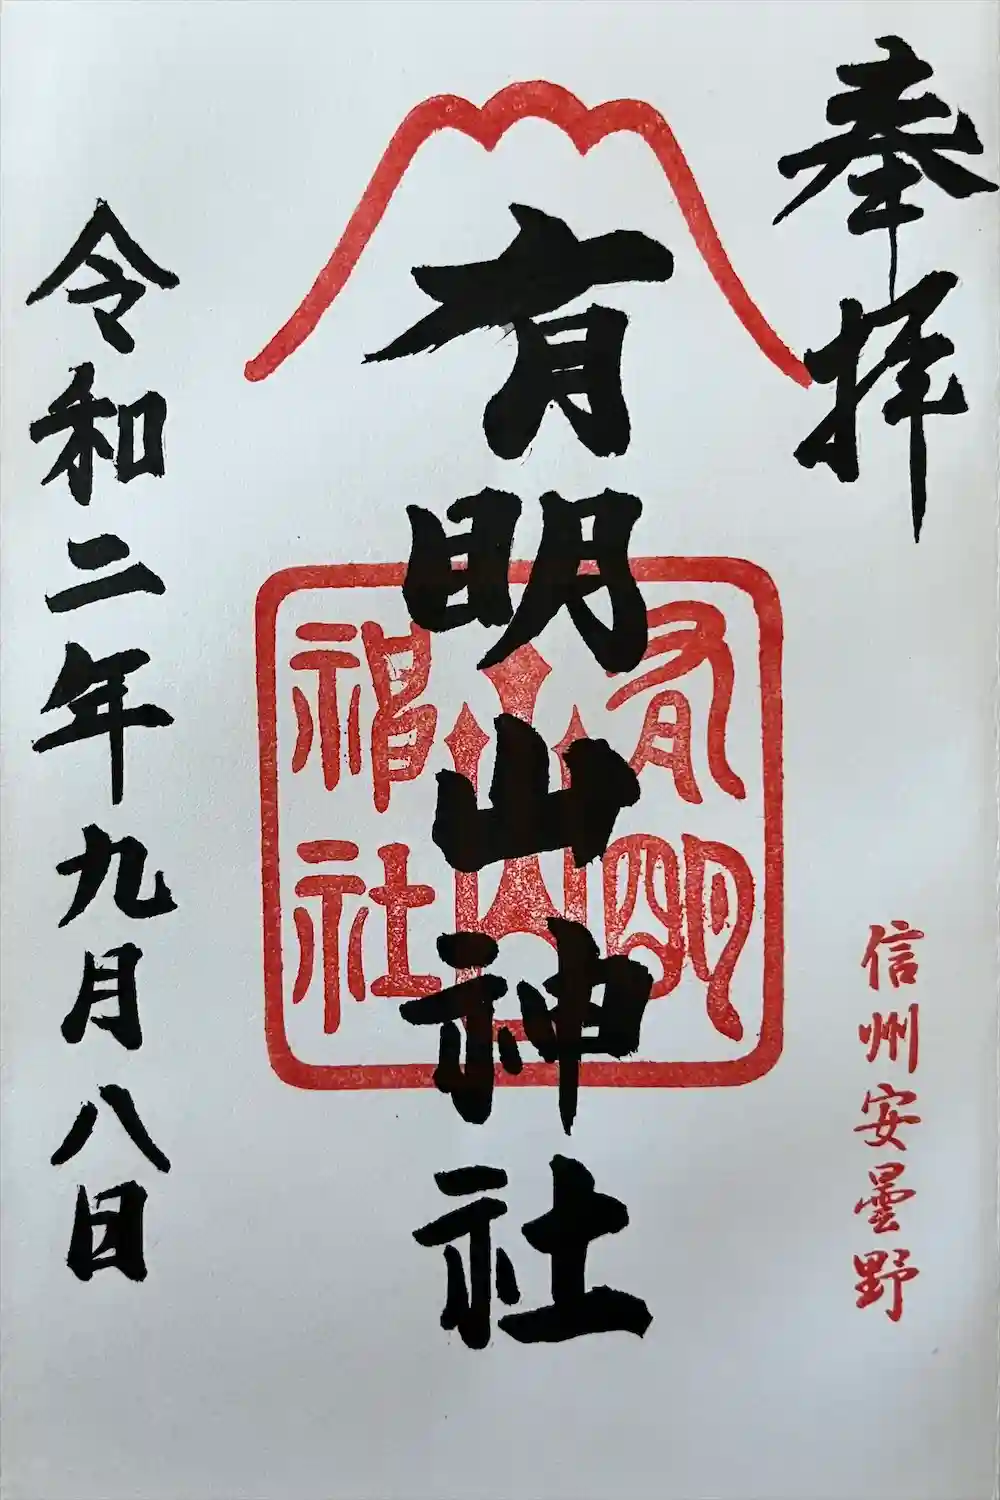 奉拝
信州安曇野
有明山神社
有明山神社
令和二年九月八日